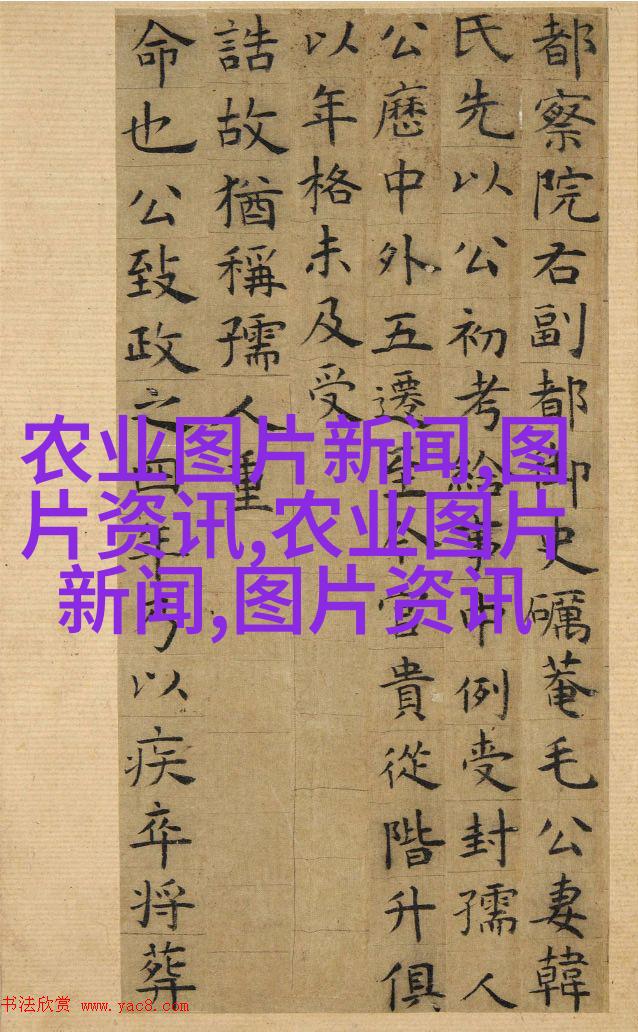 都察院右副都御史礪菴毛公妻韓
氏先以公初考給事中例受封孺人
公歷中外五遷至今官貴從階升俱
以年格未及受
誥故猶稱孺人重
命也公致政之四年乃以疾卒将葬
农业图片新闻,图
片资讯,农业图片
新闻,图片资讯
书法欣赏 www.yac8.com